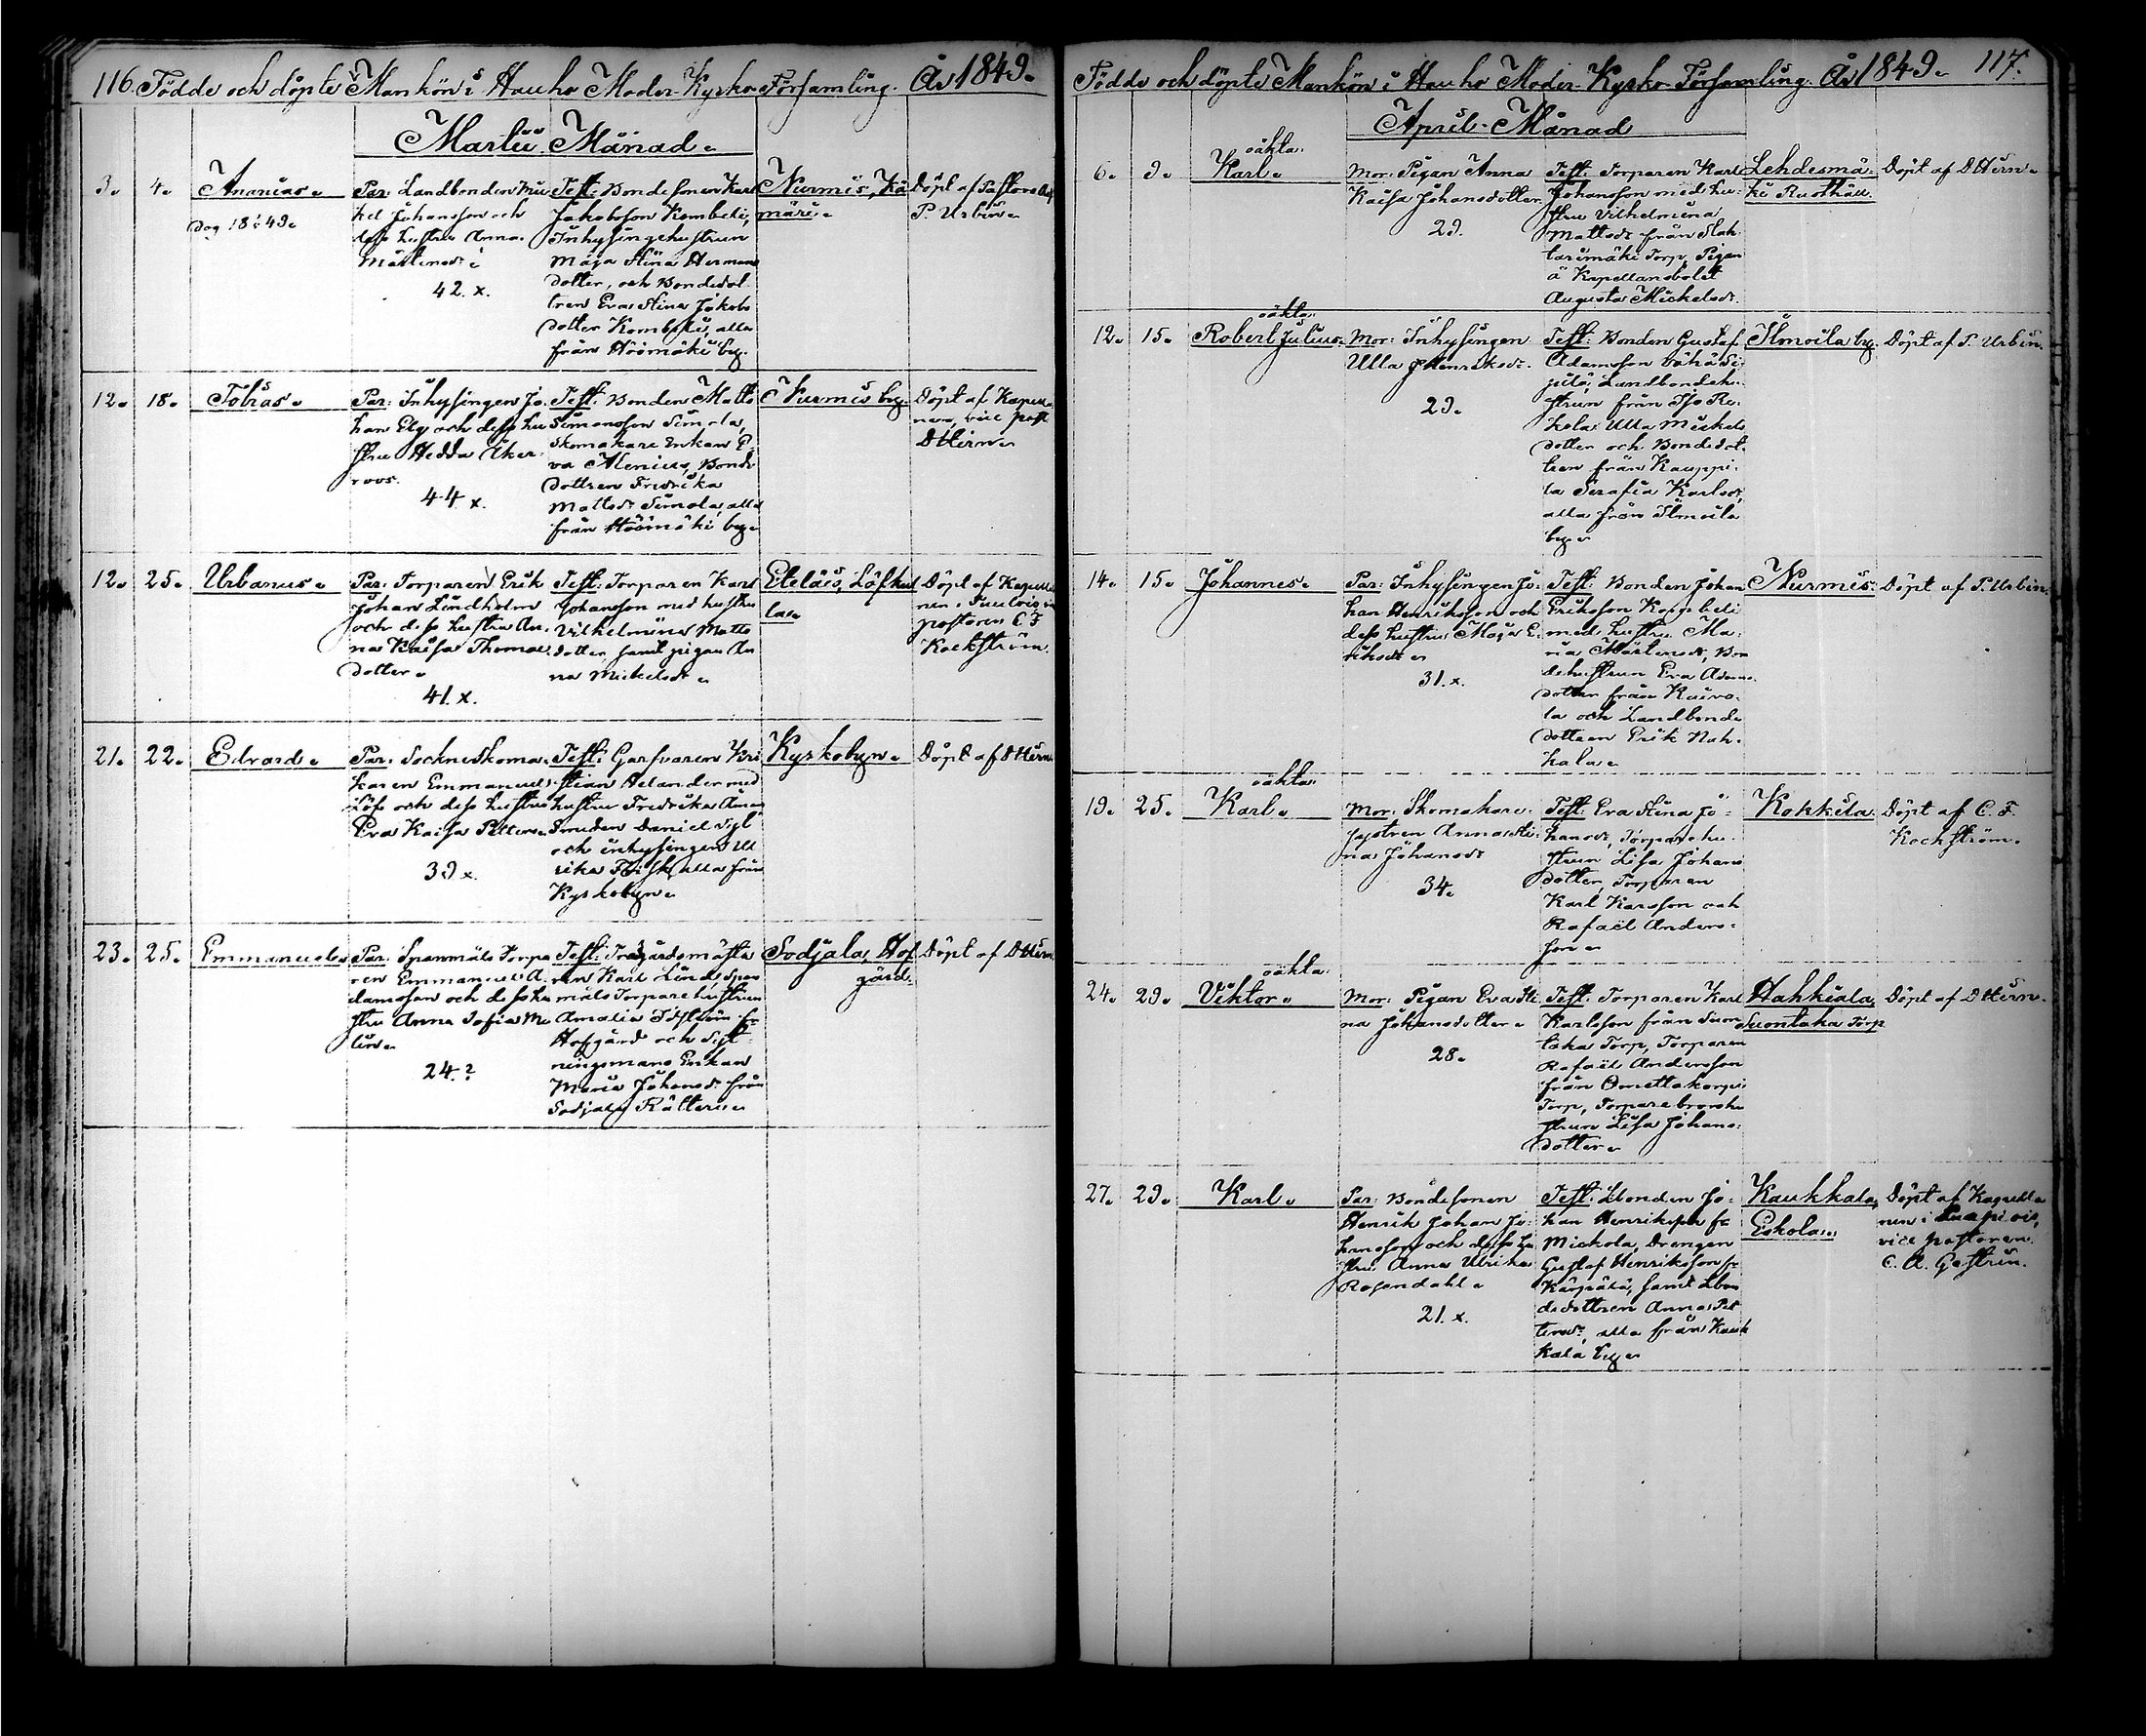 116. Födde och döpte Mankön i Hauho Moder-Kyrko Församling. År 1849.
Martii Månad.
3. 4. Ananias.
Dog 18 i 49.
Par: Landbonden Mic
kel Johansson och
dess hustru Anna
Mårtensdr
42. x.
Test: Bondesonen Karl
Jakobsson Kombeli,
Inhysingehustrun
Maja Stina Hermans
dotter, och Bondedot
tren Eva Stina Jakobs
dotter Kombeli, alla
från Höömäki by.
Nurmis, Kä
märi.
Döpt af Pastorn
P. Urbin.
12. 18. Tobias.
Par: Inhysingen Jo
han Elg och dess hu
stru Hedda Åker
roos.
44. x.
Test: Bonden Matts
Simonsson Simola,
Skomakare Enkan E
va Alenius, Bonde
dottren Fredrika
Mattsdr Simola, alla
från Höömäki by.
Nurmis by.
Döpt af Kapella
nen, vice past
D Hirn.
12. 25. Urbanus.
Par: Torparen Erik
Johan Lindholm
och dess hustru An
na Kaisa Thomae
dotter.
41. x.
Test: Torparen Karl
Johansson med hustru
Vilhelmina Matts
dotter samt pigan An
na Mickelsdr.
Eteläis, Löfkul
la.
Döpt af Kapella
nen i Tuulois
pastoren C F
Kockström.
21. 22. Edvard.
Par: Sockneskoma
karen Emmanuel
Löf och dess hustru
Eva Kaisa Petters.
39 x.
Test: Garfvaren Kri
stian Helander med
hustru Fredrika
Smeden Daniel
och inhysingen Ul
rika Frisk, alla från
Kyrkobyn.
Kyrkobyn.
Döpt af D Hirn.
23. 25. Emmanuel.
Par: Spanmåls Torpa
ren Emmanuel A
damsson och dess hu
stru Anna Sofia Me
lin.
24.?
Test: Trägårdsmästa
ren Karl Lind, Span
måls Torpare hustrun
Amalia
Hofgård och
ningsmans Enkan
Maria Johansdr från
Sodjala Rätteri.
Sodjala, Hof
gård.
Döpt af D Hirn.
Födde och döpte Mankön i Hauho Moder-Kyrko-Församling. År 1849. 117.
April-Månad
6. 9. oäkta:
Karl.
Mor: Pigan Anna
Kaisa Johansdotter
29.
Test: Torparen Karl
Johansson med hu
stru Vilhelmina
Mattsdr från Slak
tarimäki Torp, Pigan
å Kapellansbolet
Augusta Mickelsdr.
Lehdesmä
ki Rusthåll.
Döpt af D Hirn.
12. 15. oäkta:
Robert Julius.
Mor: Inhysingen
Ulla Henriksdr.
29.
Test: Bonden Gustaf
Adamsson Vähä Si
pilä, Landbondehu
strun från Iso Re
kola Ulla Mickels
dotter och Bondedot
tren från Kauppi
la Serafia Karlsdr,
alla från Ilmoila
by.
Ilmoila by.
Döpt af P. Urbin.
14. 15. Johannes.
Par: Inhysingen Jo
han Henriksson och
dess hustru Maja E
riksdr.
31. x.
Test: Bonden Johan
Eriksson Kombeli
med hustru Ma
ria Mårtensdr, Bon
dehustrun Eva Adams
dotter från Kuivo
la och Landbonde
dottren Erik Nah
kala.
Nurmis.
Döpt af P. Urbin.
19. 25. oäkta:
Karl.
Mor: Skomakare
systren Anna Sti
na Johansdr
34.
Test: Eva Stina Jo
hansdr, Torpare hu
strun Lisa Johans
dotter, Torparen
Karl Karsson och
Rafaël Anders
son.
Kokkila.
Döpt af C. F.
Kockström.
24. 29. oäkta:
Viktor.
Mor: Pigan Eva Sti
na Johansdotter.
28.
Test: Torparen Karl
Karlsson från Suon
taka Torp, Torparen
Rafaël Andersson
från Omettakorpi
Torp, Torpare brorshu
strun Lisa Johans
dotter.
Hahkiala,
Suontaka Torp
Döpt af D Hirn.
27. 29. Karl.
Par: Bondesonen
Henrik Johan Jo
hansson och dess hu
stru Anna Ulrika
Rosendahl.
21. x.
Test: Lbonden Jo
han Henriksson fr
Mickola, Drengen
Gustaf Henriksson fr
Kärpälä, samt Lbon
dedottren Anna Pet
tersdr, alla från Kauk
kala by.
Kaukkala,
Eskola.
Döpt af Kapella
nen i Luopiois,
vice pastoren
C. A. Gestrin.